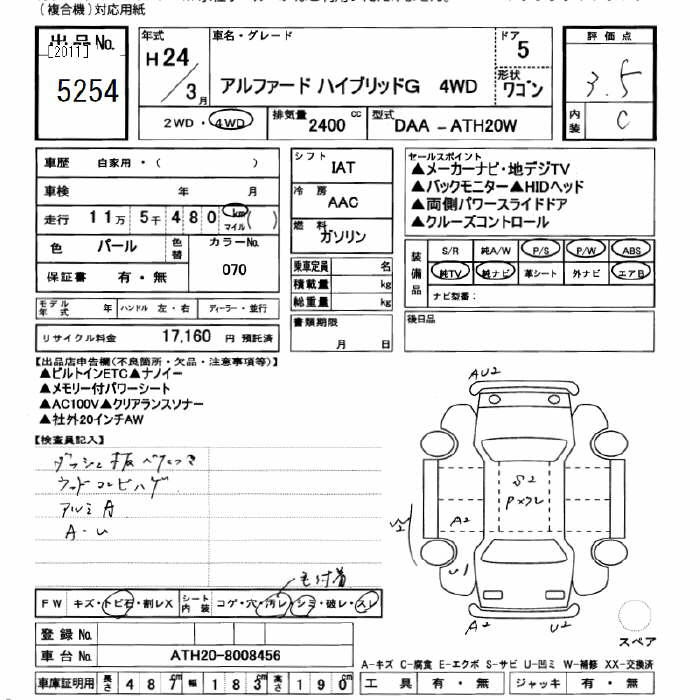 (複合機)対応用紙
出品No.
[2011]
5254
年式
H24/3月
車名・グレード
アルファード ハイブリッドG 4WD
ドア
5
形状
ワゴン
評価点
3.5
内装
C
2WD・4WD
排気量 2400 cc
型式 DAA-ATH20W
車歴 自家用・( )
車検 年 月
走行 11万 5千 480 km マイル ( )
色 パール 色替 カラーNo. 070
保証書 有・無
モデル年式 年 ハンドル 左・右 ディーラー・並行
リサイクル料金 17,160 円 預託済
シフト IAT
冷房 AAC
燃料 ガソリン
乗車定員 名
積載量 kg
総重量 kg
書類期限
月 日
セールスポイント
▲メーカーナビ・地デジTV
▲バックモニター▲HIDヘッド
▲両側パワースライドドア
▲クルーズコントロール
装備品
S/R 純A/W P/S P/W ABS
純TV 純ナビ 革シート 外ナビ エアB
ナビ型番:
後日品
【出品店申告欄(不良箇所・欠品・注意事項等)】
▲ビルトインETC▲ナノイー
▲メモリー付パワーシート
▲AC100V▲クリアランスソナー
▲社外20インチAW
【検査員記入】
アルミA
A-U
AU2
S2
A2
U1
A2
U2
FW キズ・トビ石・割レX シート内装 コゲ・穴・汚レ・シミ・破レ・スレ
登録No.
車台No. ATH20-8008456
車庫証明用 長さ 487cm 幅 183cm 高さ 190cm
スペア
A-キズ C-腐食 E-エクボ S-サビ U-凹ミ W-補修 XX-交換済
工具 有・無 ジャッキ 有・無